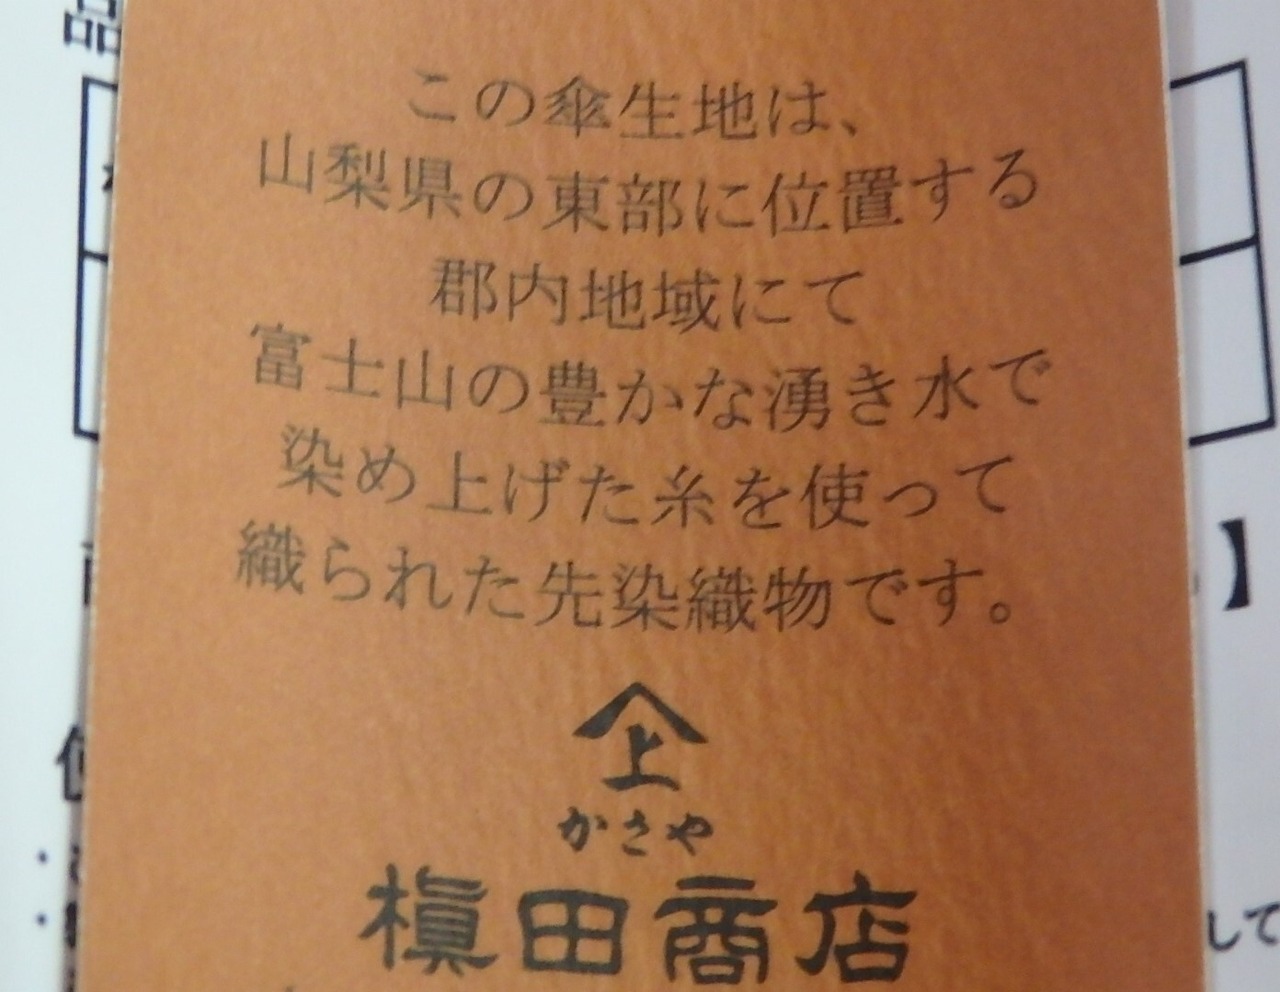 この傘生地は、
山梨県の東部に位置する
郡内地域にて
富士山の豊かな湧き水で
染め上げた糸を使って
織られた先染織物です。
上
かさや
槇田商店
品
】
して